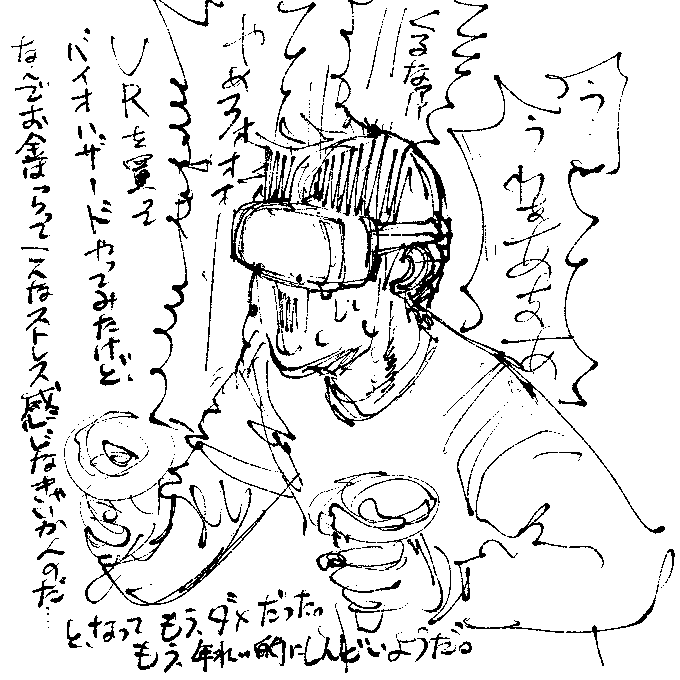 う
うわぁあああ
くるなァ
やめろォオオ
VRを買って
バイオハザードやってみたけど、
なんでお金はらってこんなストレス感じなきゃいかんのだ…
と、なって もう、ダメだった。
もう、年れい的にしんどいようだ。